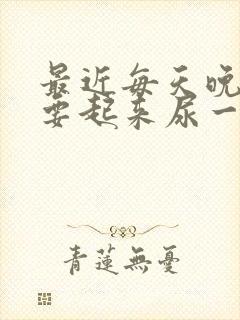 最近每天晚
要起来尿一
青蓮無憂